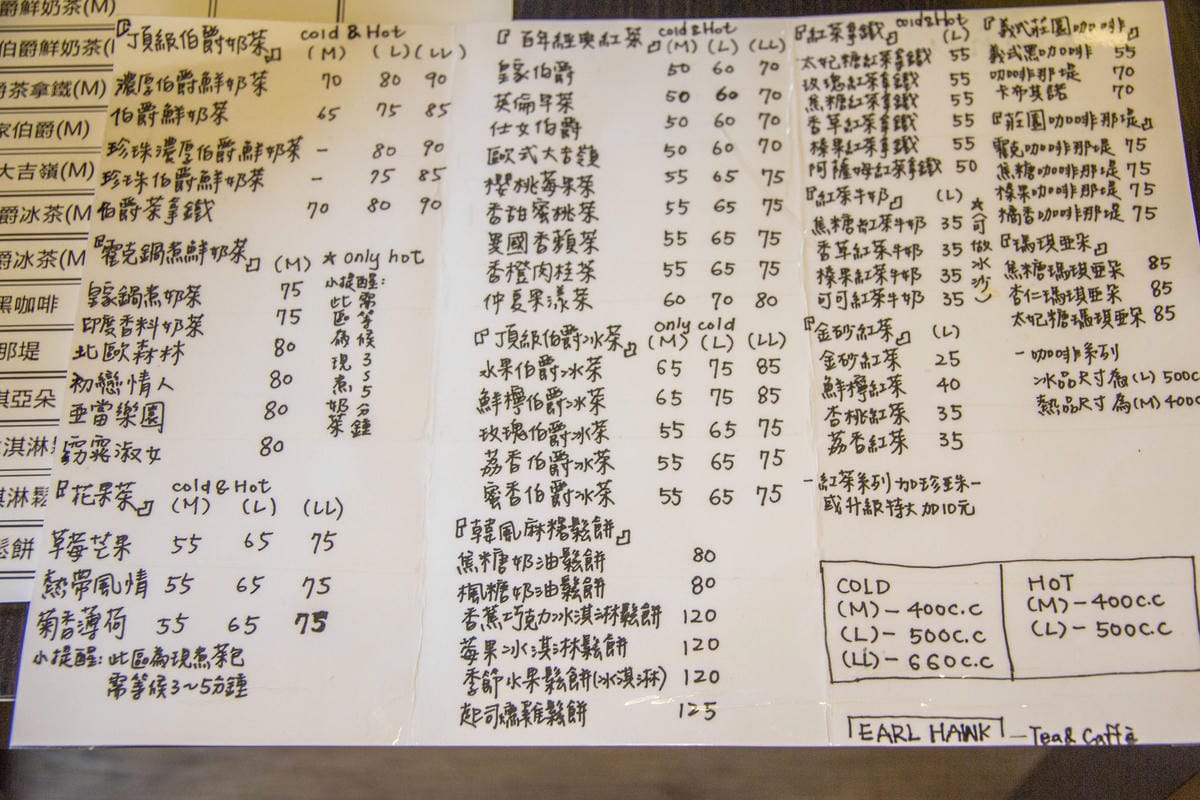 伯爵鮮奶茶(M)
茶拿鐵(M)
伯爵(M)
大吉嶺(M)
爵冰茶(M
爵冰茶(M
黑咖啡
那堤
淇亞朵
淇淋
淇淋鬆
鬆餅
『頂級伯爵奶茶』 cold & Hot
(M) (L) (LL)
濃厚伯爵鮮奶茶 70 80 90
伯爵鮮奶茶 65 75 85
珍珠濃厚伯爵鮮奶茶 - 80 90
珍珠伯爵鮮奶茶 - 75 85
伯爵茶拿鐵 70 80 90
『霍克鍋煮鮮奶茶』(M) ★ only hot
皇家鍋煮奶茶 75
印度香料奶茶 75
北歐森林 80
初戀情人 80
亞當樂園 80
窈窕淑女 80
小提醒:
此區為現煮奶茶
需等候3~5分鐘
『花果茶』 cold & Hot
(M) (L) (LL)
草莓芒果 55 65 75
熱帶風情 55 65 75
菊香薄荷 55 65 75
小提醒: 此區為現煮茶包
需等候3~5分鐘
『百年經典紅茶』 cold & Hot
(M) (L) (LL)
皇家伯爵 50 60 70
英倫早茶 50 60 70
仕女伯爵 50 60 70
歐式大吉嶺 50 60 70
櫻桃莓果茶 55 65 75
香甜蜜桃茶 55 65 75
曼國香蘋茶 55 65 75
香橙肉桂茶 55 65 75
仲夏果漾茶 60 70 80
『頂級伯爵冰茶』 only cold
(M) (L) (LL)
水果伯爵冰茶 65 75 85
鮮檸伯爵冰茶 65 75 85
玫瑰伯爵冰茶 55 65 75
荔香伯爵冰茶 55 65 75
蜜香伯爵冰茶 55 65 75
『韓風麻糬鬆餅』
焦糖奶油鬆餅 80
楓糖奶油鬆餅 80
香蕉巧克力冰淇淋鬆餅 120
莓果冰淇淋鬆餅 120
季節水果鬆餅(冰淇淋) 120
起司燻雞鬆餅 125
『紅茶拿鐵』 cold & Hot
(L)
太妃糖紅茶拿鐵 55
玫瑰紅茶拿鐵 55
焦糖紅茶拿鐵 55
香草紅茶拿鐵 55
榛果紅茶拿鐵 55
阿薩姆紅茶拿鐵 50
『紅茶牛奶』 (L)
焦糖紅茶牛奶 35
香草紅茶牛奶 35
榛果紅茶牛奶 35
可可紅茶牛奶 35
★(可做冰沙)
『金砂紅茶』 (L)
金砂紅茶 25
鮮檸紅茶 40
杏桃紅茶 35
荔香紅茶 35
-紅茶系列加珍珠-
或升級特大加10元
『義式莊園咖啡』
義式黑咖啡 55
咖啡那堤 70
卡布其諾 70
『莊園咖啡那堤』
霍克咖啡那堤 75
焦糖咖啡那堤 75
榛果咖啡那堤 75
橘香咖啡那堤 75
『瑪琪亞朵』
焦糖瑪琪亞朵 85
杏仁瑪琪亞朵 85
太妃糖瑪琪亞朵 85
-咖啡系列
冰品尺寸為(L) 500c
熱品尺寸為(M) 400c
COLD
(M) - 400C.C
(L) - 500C.C
(LL) - 660C.C
HOT
(M) - 400C.C
(L) - 500C.C
EARL HAWK - Tea & Caffè